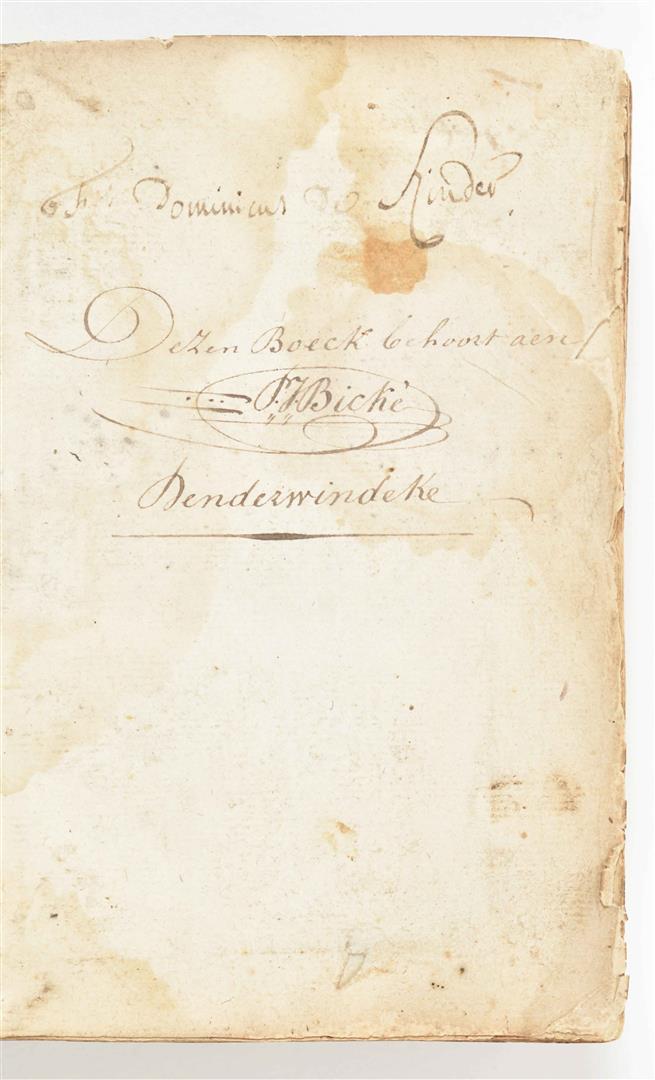 Dominicus De Kinder
Dezen Boeck behoort aen
P.J. Bické
Denderwindeke